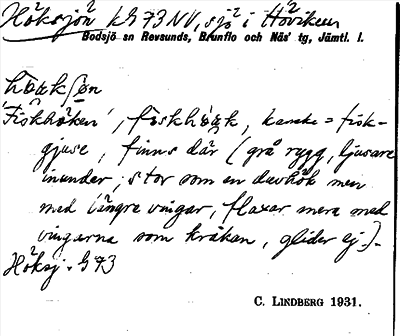 Höksjön k G 73 NV, sjö i Hoviken
Bodsjö sn Revsunds, Brunflo och Näs' tg, Jämtl. l.
hö̀ɑkʃǫn
'Fiskhöken', fìskhö̀ɑk, kanske = fisk-
gjuse, finns där (grå rygg, ljusare
inunder; stor som en duvhök men
med längre vingar, flaxar mera med
vingarna som kråkan, glider ej).-
Höksj. G 73
C. LINDBERG 1931.